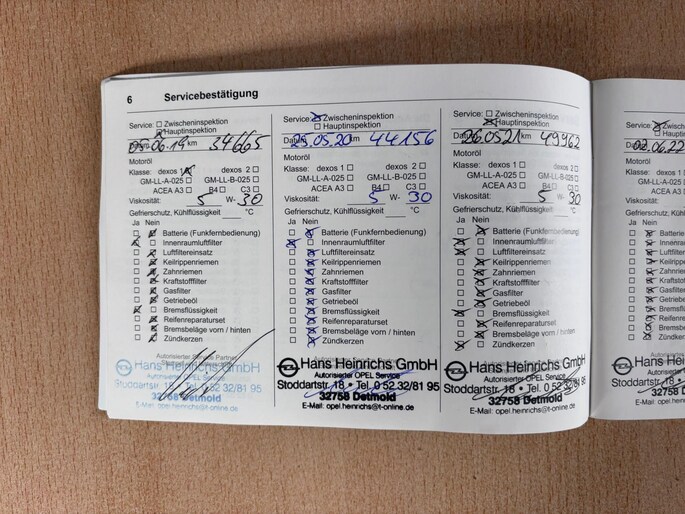 6 Servicebestätigung
Service: Zwischeninspektion
Hauptinspektion
Datum 05.06.19 km 34665
Motoröl
Klasse: dexos 1 dexos 2
GM-LL-A-025 GM-LL-B-025
ACEA A3 B4 C3
Viskosität: 5 W- 30
Gefrierschutz, Kühlflüssigkeit °C
Ja Nein
Batterie (Funkfernbedienung)
Innenraumluftfilter
Luftfiltereinsatz
Keilrippenriemen
Zahnriemen
Kraftstofffilter
Gasfilter
Getriebeöl
Bremsflüssigkeit
Reifenreparaturset
Bremsbeläge vorn / hinten
Zündkerzen
Autorisierter Service Partner
Hans Heinrichs GmbH
Autorisierter OPEL Service
Stoddartstr. 18 • Tel. 0 52 32/81 95
32758 Detmold
E-Mail: opel.heinrichs@t-online.de
Service: Zwischeninspektion
Hauptinspektion
Datum 25.05.20 km 44156
Motoröl
Klasse: dexos 1 dexos 2
GM-LL-A-025 GM-LL-B-025
ACEA A3 B4 C3
Viskosität: 5 W- 30
Gefrierschutz, Kühlflüssigkeit °C
Ja Nein
Batterie (Funkfernbedienung)
Innenraumluftfilter
Luftfiltereinsatz
Keilrippenriemen
Zahnriemen
Kraftstofffilter
Gasfilter
Getriebeöl
Bremsflüssigkeit
Reifenreparaturset
Bremsbeläge vorn / hinten
Zündkerzen
Hans Heinrichs GmbH
Autorisierter OPEL Service
Stoddartstr. 18 • Tel. 0 52 32/81 95
32758 Detmold
E-Mail: opel.heinrichs@t-online.de
Service: Zwischeninspektion
Hauptinspektion
Datum 26.05.21 km 49962
Motoröl
Klasse: dexos 1 dexos 2
GM-LL-A-025 GM-LL-B-025
ACEA A3 B4 C3
Viskosität: 5 W- 30
Gefrierschutz, Kühlflüssigkeit °C
Ja Nein
Batterie (Funkfernbedienung)
Innenraumluftfilter
Luftfiltereinsatz
Keilrippenriemen
Zahnriemen
Kraftstofffilter
Gasfilter
Getriebeöl
Bremsflüssigkeit
Reifenreparaturset
Bremsbeläge vorn / hinten
Zündkerzen
Hans Heinrichs GmbH
Autorisierter OPEL Service
Stoddartstr. 18 • Tel. 0 52 32/81 95
32758 Detmold
E-Mail: opel.heinrichs@t-online.de
Service:
02.06.22
Motoröl
Klasse:
GM-LL-A
Viskosität:
Gefrierschutz,
Ja Nein